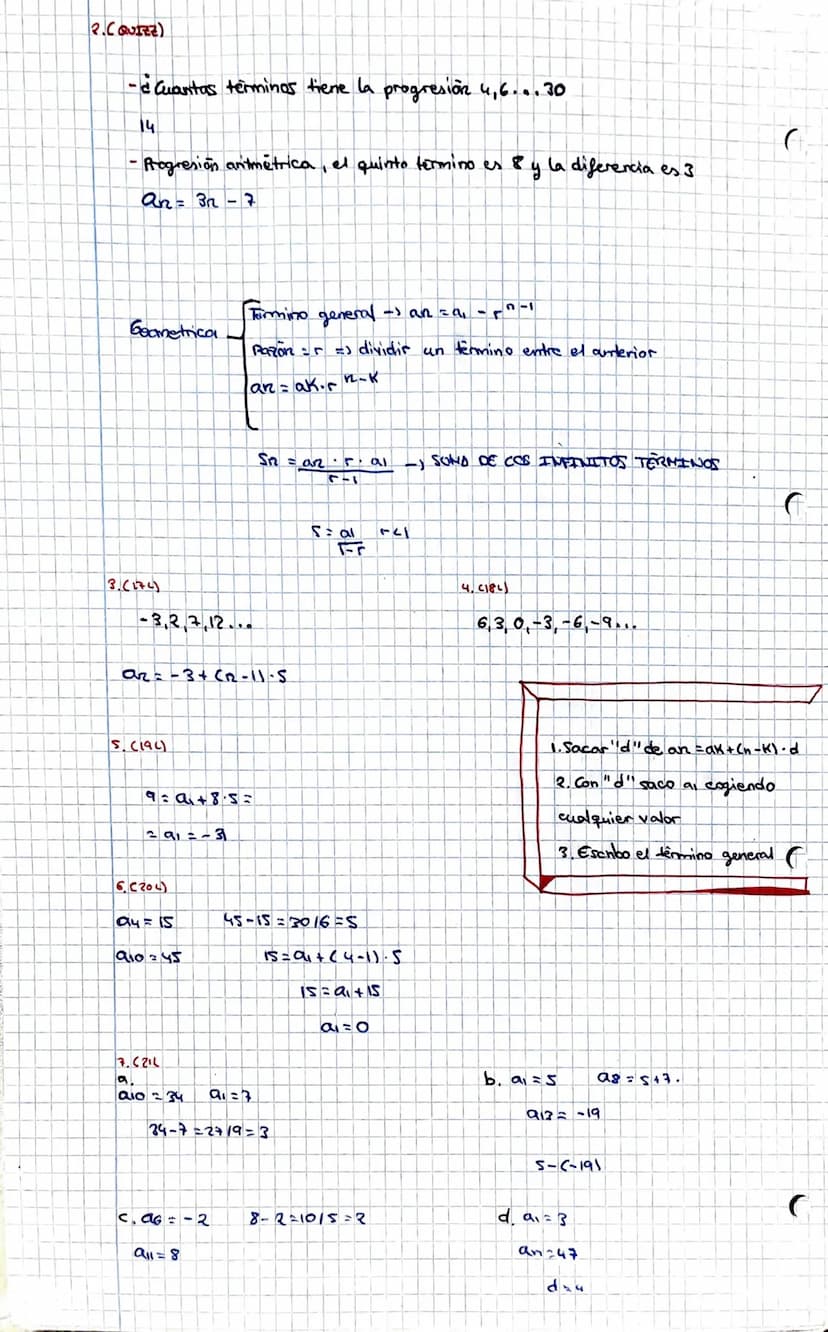 2. (QUIZZ)
- ¿Cuantos términos tiene la progresión 4,6...30
14
- Progresión aritmétrica, el quinto termino es 8 y la diferencia es 3
an = 3n - 7
Geometrica
Término general → an = a1 - r^n-1
Razón = r => dividir un término entre el anterior
an = aK·r^n-K
Sn = an · r · a1 / r-1 → SUMA DE LOS INFINITOS TÉRMINOS
S = a1 / 1-r r<1
3. (17L) 4. (18L)
-3,2,7,12... 6,3,0,-3,-6,-9...
an = -3 + (n-1)·5
5. (19L)
9 = a1 + 8·5 =
= a1 = -31
1. Sacar "d" de an = aK+(n-K)·d
2. Con "d" saco a1 cogiendo
cualquier valor
3. Escribo el término general
6. (20L)
a4 = 15 45-15 = 30/6 = 5
a10 = 45 15 = a1 + (4-1)·5
15 = a1 + 15
a1 = 0
7. (21L
a.
a10 = 34 a1 = 7
34-7 = 27/9 = 3
b. a1 = 5 a8 = 5+7.
a13 = -19
5-(-19)
c. a6 = -2 8-2=10/5=2
a11 = 8
d. a1 = 3
an = 47
d = 4